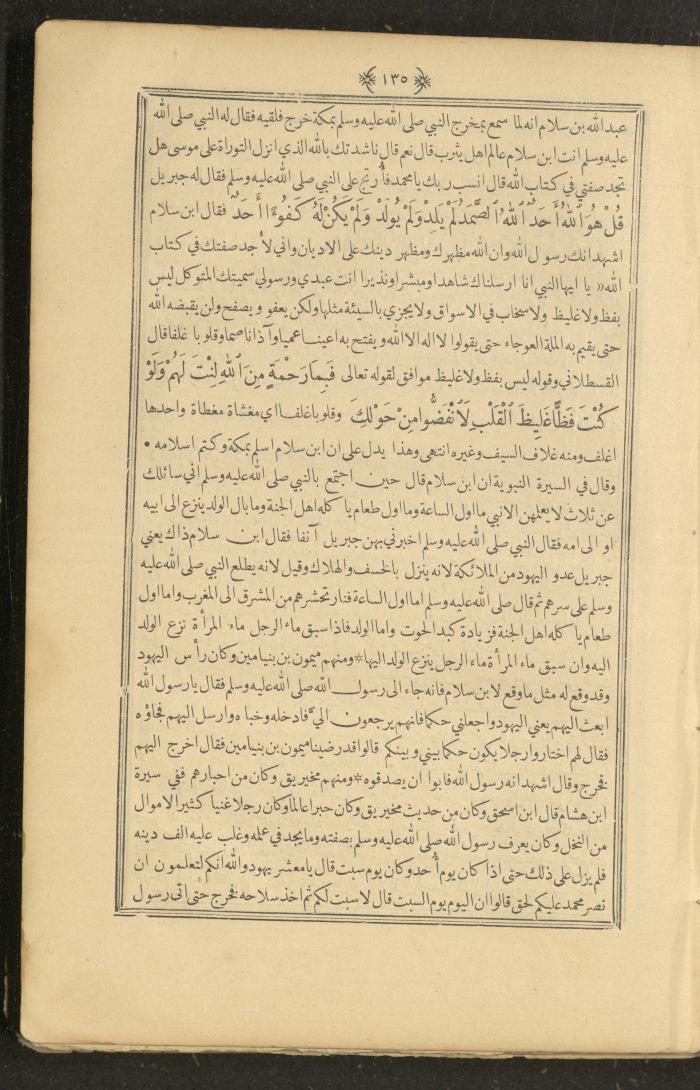 ١٣٥
عبد الله بن سلام انه لما سمع بمخرج النبي صلى الله عليه وسلم بمكة خرج فلقيه فقال له النبي صلى الله
عليه وسلم انت ابن سلام عالم اهل يثرب قال نعم قال ناشدتك بالله الذي انزل التوراة على موسى هل
تجد صفتي في كتاب الله قال انسب ربك يا محمد فأُرتج على النبي صلى الله عليه وسلم فقال له جبريل
قُلْ هُوَ اللهُ أَحَدٌ اللهُ الصَّمَدُ لَمْ يَلِدْ وَلَمْ يُولَدْ وَلَمْ يَكُنْ لَهُ كُفُوًا أَحَدٌ فقال ابن سلام
اشهد انك رسول الله وان الله مظهرك ومظهر دينك على الاديان واني لأجد صفتك في كتاب
الله « يا ايها النبي انا ارسلناك شاهدا ومبشرا ونذيرا انت عبدي ورسولي سميتك المتوكل ليس
بفظ ولا غليظ ولا سخاب في الاسواق ولا يجزي بالسيئة مثلها ولكن يعفو ويصفح ولن يقبضه الله
حتى يقيم به الملة العوجاء حتى يقولوا لا اله الا الله ويفتح به اعينا عميا وآذانا صما وقلوبا غلفا قال
القسطلاني وقوله ليس بفظ ولا غليظ موافق لقوله تعالى فَبِمَا رَحْمَةٍ مِنَ اللهِ لِنْتَ لَهُمْ وَلَوْ
كُنْتَ فَظًّا غَلِيظَ الْقَلْبِ لَانْفَضُّوا مِنْ حَوْلِكَ وقلوبا غلفا اي مغشاة مغطاة واحدها
اغلف ومنه غلاف السيف وغيره انتهى وهذا يدل على ان ابن سلام اسلم بمكة وكتم اسلامه •
وقال في السيرة النبوية ان ابن سلام قال حين اجتمع بالنبي صلى الله عليه وسلم اني سائلك
عن ثلاث لا يعلمهن الا نبي ما اول الساعة وما اول طعام يا كله اهل الجنة وما بال الولد ينزع الى ابيه
او الى امه فقال النبي صلى الله عليه وسلم اخبرني بهن جبريل آنفا فقال ابن سلام ذاك يعني
جبريل عدو اليهود من الملائكة لانه ينزل بالخسف والهلاك وقيل لانه يطلع النبي صلى الله عليه
وسلم على سرهم ثم قال صلى الله عليه وسلم اما اول الساعة فنار تحشرهم من المشرق الى المغرب واما اول
طعام يا كله اهل الجنة فزيادة كبد الحوت واما الولد فاذا سبق ماء الرجل ماء المرأة نزع الولد
اليه وان سبق ماء المرأة ماء الرجل ينزع الولد اليها * ومنهم ميمون بن بنيامين وكان رأس اليهود
وقد وقع له مثل ما وقع لابن سلام فانه جاء الى رسول الله صلى الله عليه وسلم فقال يا رسول الله
ابعث اليهم يعني اليهود واجعلني حكما فانهم يرجعون اليَّ فادخله وخباه وارسل اليهم فجاؤه
فقال لهم اختاروا رجلا يكون حكما بيني وبينكم قالوا قد رضينا ميمون بن بنيامين فقال اخرج اليهم
فخرج وقال اشهد انه رسول الله فابوا ان يصدقوه * ومنهم مخيريق وكان من احبارهم ففي سيرة
ابن هشام قال ابن اسحق وكان من حديث مخيريق وكان حبرا عالما وكان رجلا غنيا كثير الاموال
من النخل وكان يعرف رسول الله صلى الله عليه وسلم بصفته وما يجد في علمه وغلب عليه الف دينه
فلم يزل على ذلك حتى اذا كان يوم أُحد وكان يوم سبت قال يا معشر يهود والله انكم لتعلمون ان
نصر محمد عليكم لحق قالوا ان اليوم يوم السبت قال لا سبت لكم ثم اخذ سلاحه فخرج حتى اتى رسول